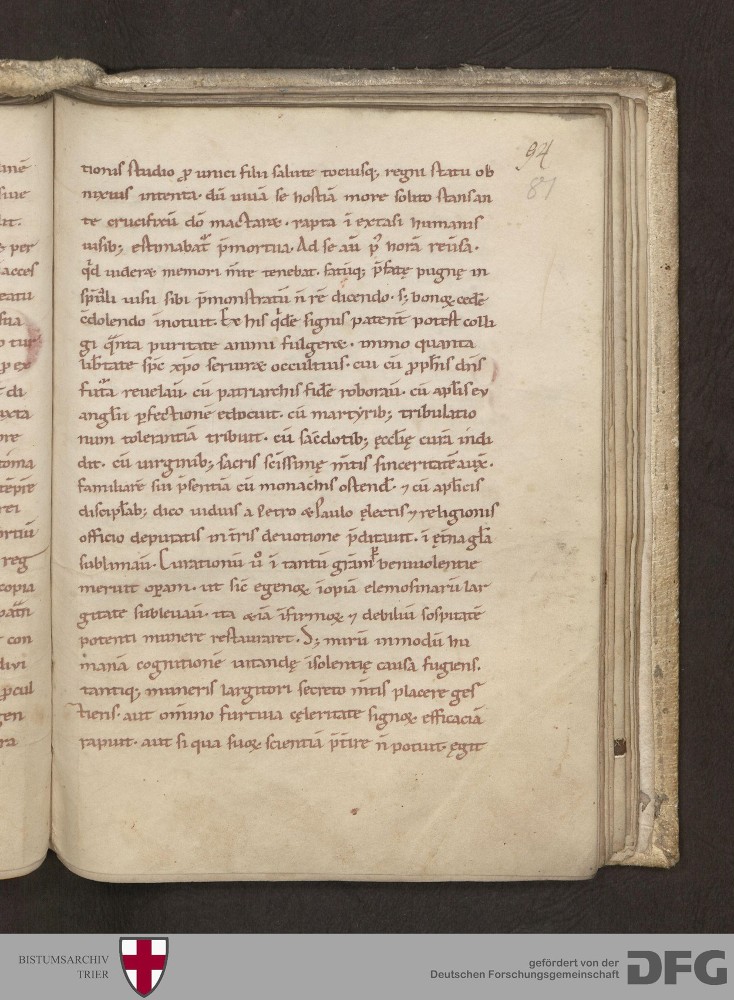 94
87
tionis studio ꝓ unici filii salute tociusq; regni statu ob
nixius intenta. dū uiuā se hostiā more solito stansan
te crucifixū dō mactaræ. rapta ī extasi humanis
uisib; estimabat᷑ p̄mortua. Ad se aū p᷒ horā reūsa.
qd̄ uideræ memori m̄te tenebat. fatūq; p̄fatę pugnę in
sp̄ūali uisu sibi p̄monstratū n̄ rē dicendo. s; bonoꝝ cedē
c̄dolendo īnotuit. Ex his qͥdē signis patent̄ potest colli
gi qn̄ta puritate animi fulgeræ. immo quanta
lib̄tate sp̄c xp̄o seruiræ occultius. cui cū ꝓph̄is dn̄s
fut᷑a reuelau᷑. cū patriarchis fidē roborau᷑. cū ap̄lis eu
anglii ꝑfectionē edocuit. cū martẏrib; tribulatio
num tolerantiā tribuit. cū sac̄dotib; ęcclię curā indi
dit. cū uirginib; sacris sc̄issimę m̄tis sinceritatē aux̄.
familiarē sui p̄sentiā cū monachis ostend̄. ⁊ cū ap̄licis
discipl̄ab; dico uiduis a Petro & Paulo ęlectis ⁊ religionis
officio deputatis in t̄ris deuotione p̄ditauit. ī ęt̄na gl̄a
sublimau᷑. Curationū u͛o ī tantū gr̄am p̱ beniuolentie
meruit oꝑam. ut sic̄ egenoꝝ īopiā elemosinarū lar
gitate subleuau᷑. ita &iā īfirmoꝝ ⁊ debiliū sospitatē
potenti munere restauraret. S; mirū inmodū hu
manā cognitionē uitandę īsolentię causa fugiens.
tantiq; muneris largitori secreto m̄tis placere ges
tiens. aut om̄ino furtiua cęleritate signoꝝ efficaciā
rapuit. aut si qua suoꝝ scientiā p̄t̄ire n̄ potuit. ęgit
BISTUMSARCHIV
TRIER
gefördert von der
Deutschen Forschungsgemeinschaft
DFG